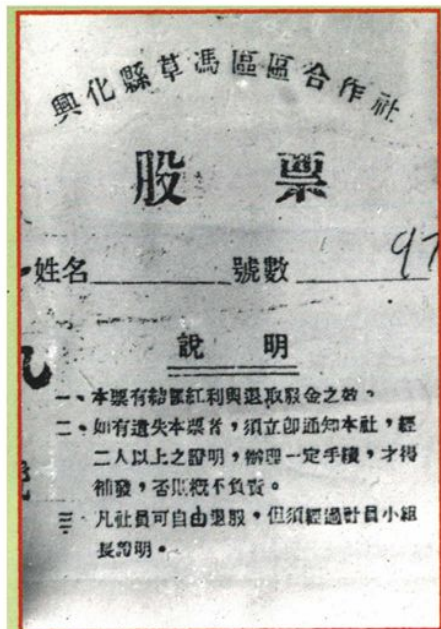 興化縣草馮區區合作社
股票
姓名 號數 97
說明
一、本票有結匯紅利與退取股金之效。
二、如有遺失本票者，須立卽通知本社，經
二人以上之證明，辦理一定手續，才得
補發，否則概不負責。
三、凡社員可自由退股，但須經過社員小組
長證明。